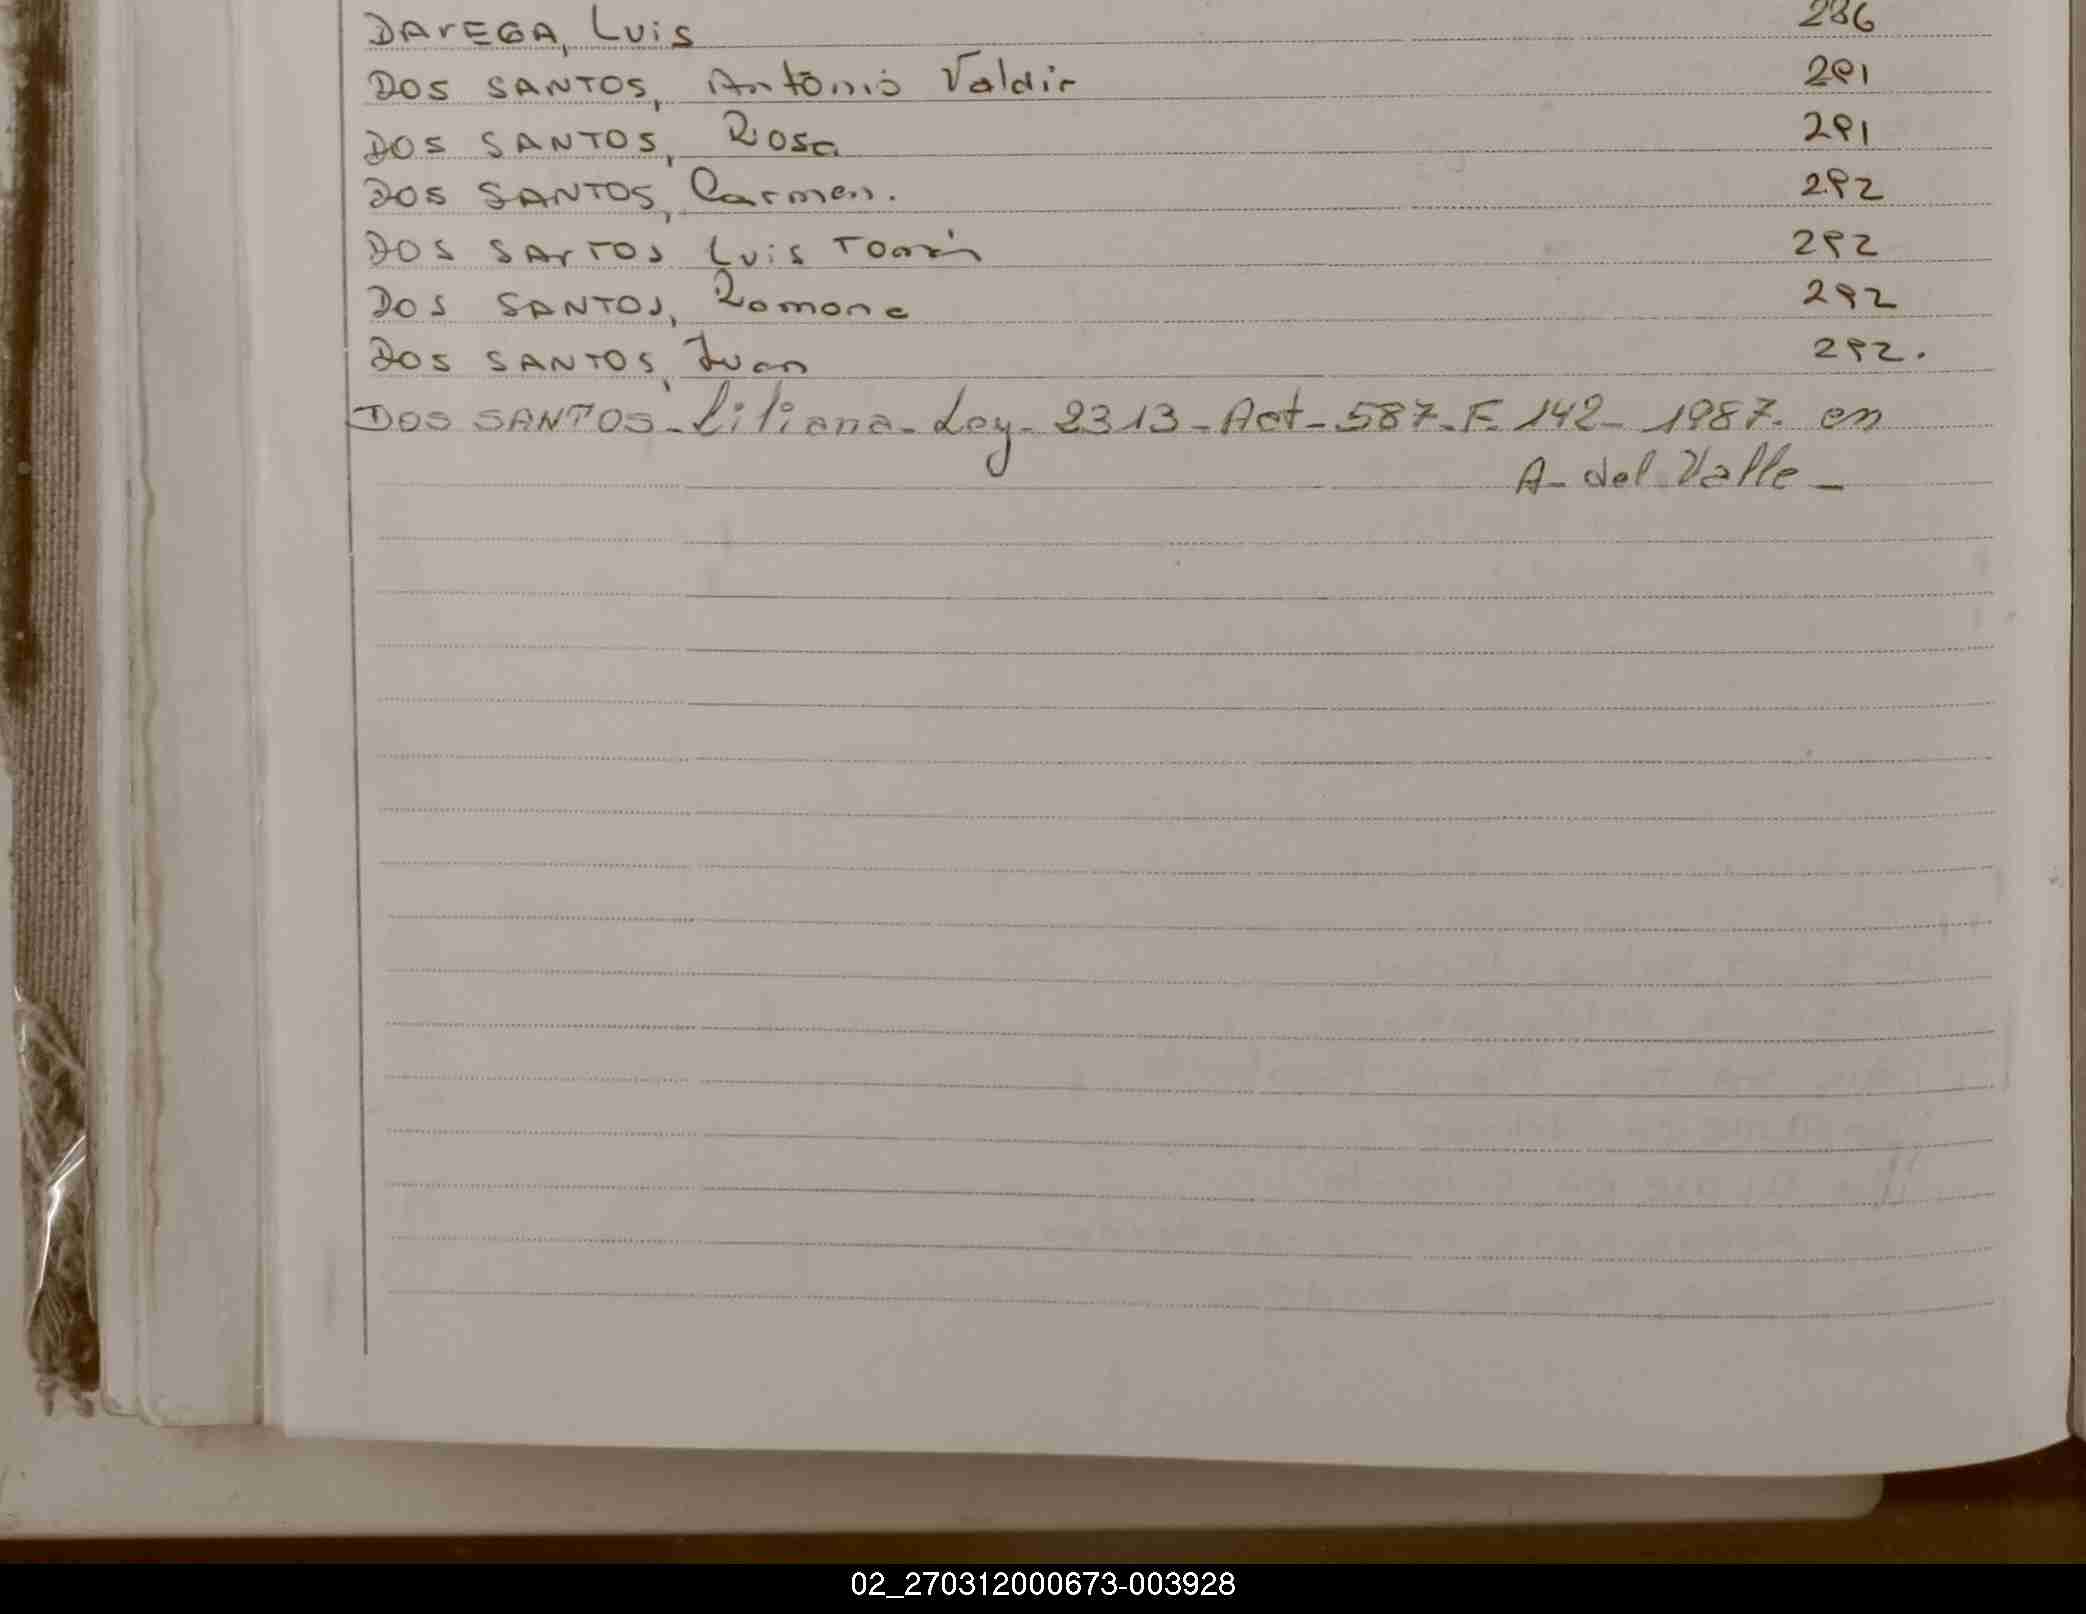 DAVEGA, Luis 286
DOS SANTOS, Antônio Valdir 291
DOS SANTOS, Rosa 291
DOS SANTOS, Carmen. 292
DOS SANTOS Luis 292
DOS SANTOS, Ramona 292
DOS SANTOS, Juan 292.
DOS SANTOS - Liliana - Ley - 2313 - Act - 587 - F. 142 - 1987. en
A - del Valle -
02_270312000673-003928